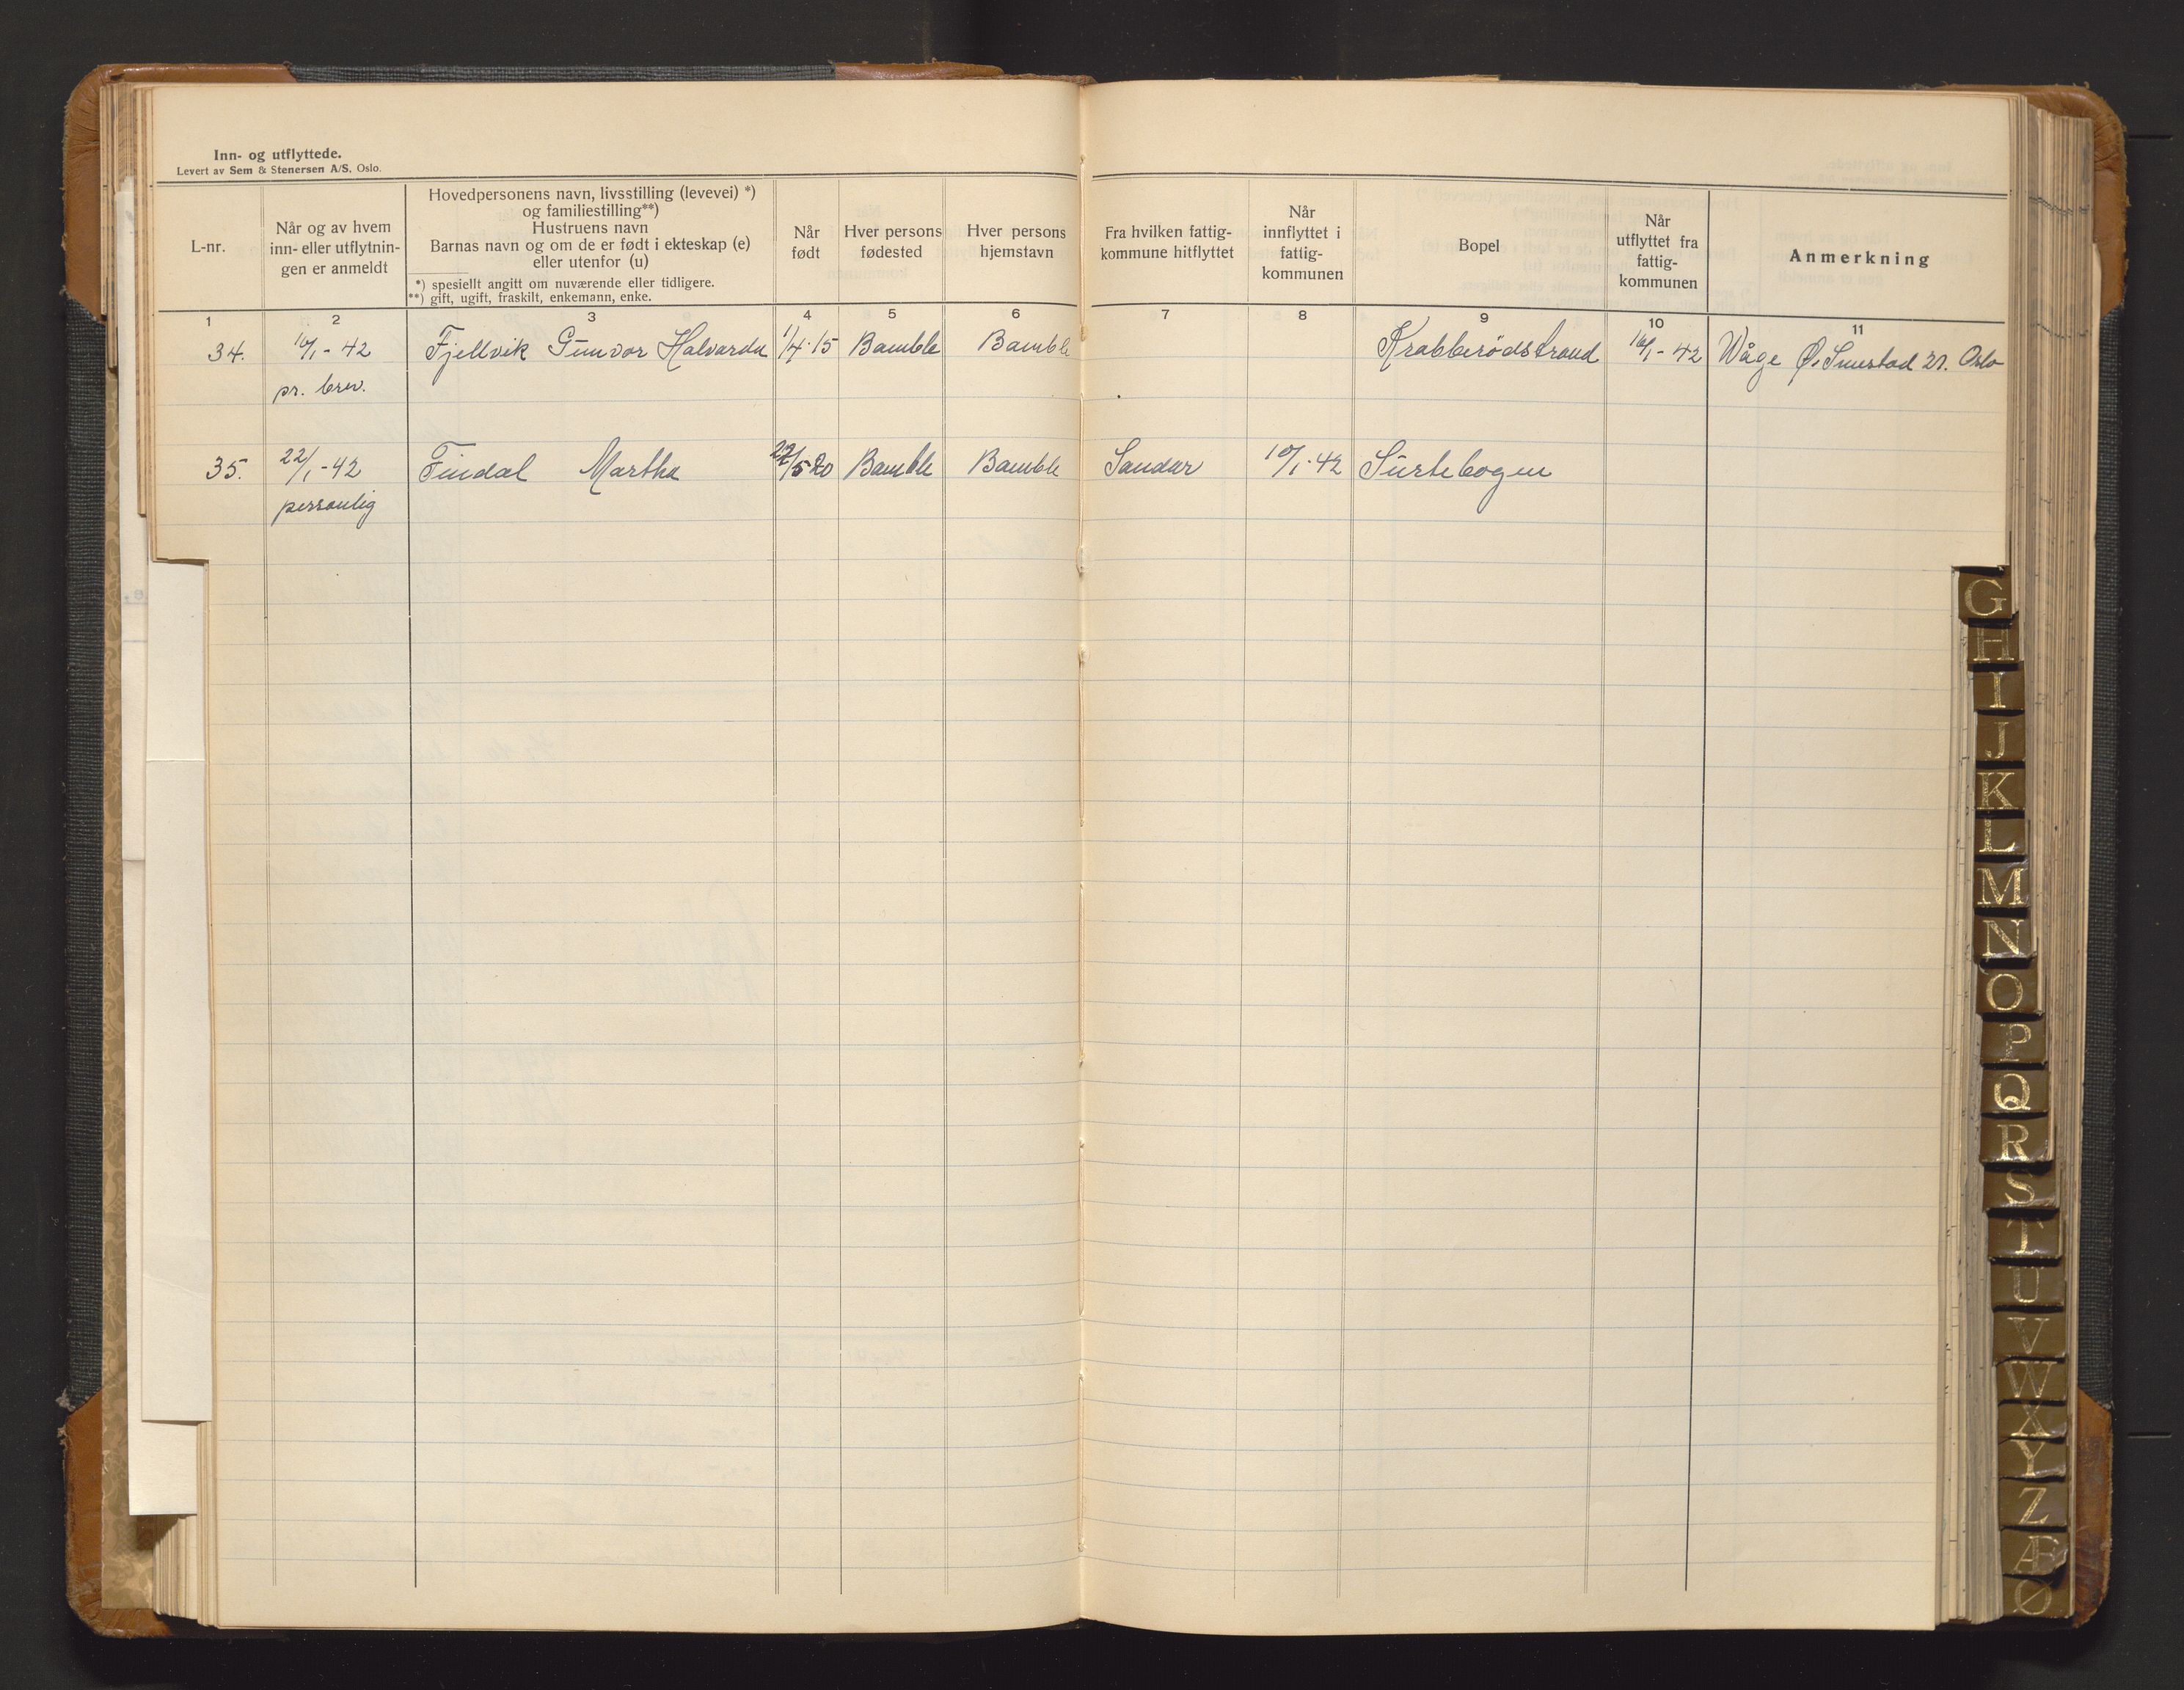 Inn- og utflyttede.
Levert av Sem & Stenersen A/S. Oslo.
L-nr.
Når og av hvem
inn- eller utflytnin-
gen er anmeldt
Hovedpersonens navn, livsstilling (levevei) *)
og familiestilling**)
Hustruens navn
Barnas navn og om de er født i ekteskap (e)
eller utenfor (u)
*) spesiellt angitt om nuværende eller tidligere.
**) gift, ugift, fraskilt, enkemann, enke.
Når
født
Hver persons
fødested
Hver persons
hjemstavn
Fra hvilken fattig-
kommune hitflyttet
Når
innflyttet i
fattig-
kommunen
Bopel
Når
utflyttet fra
fattig-
kommunen
Anmerkning
1 2 3 4 5 6 7 8 9 10 11
34. 16/1-42 Fjellvik Gunvor Halvarda 1/4-15 Bamble Bamble Krabberødstrand 16/1-42 Våge Ø. Smestad 21. Oslo
pr. brev.
35. 22/1-42 Findal Martha 22/5-20 Bamble Bamble Sandar 10/1-42 Surtebogen
personlig
G
H
I
J
K
L
M
N
O
P
Q
R
S
T
U
V
W
X
Y
Z
Æ
Ø